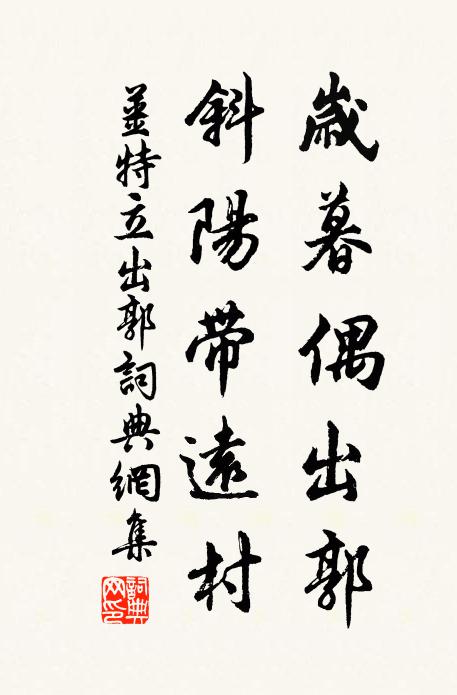 歲暮偶出郭
斜陽帶遠村
姜特立出郭詞典網集
詞典網印